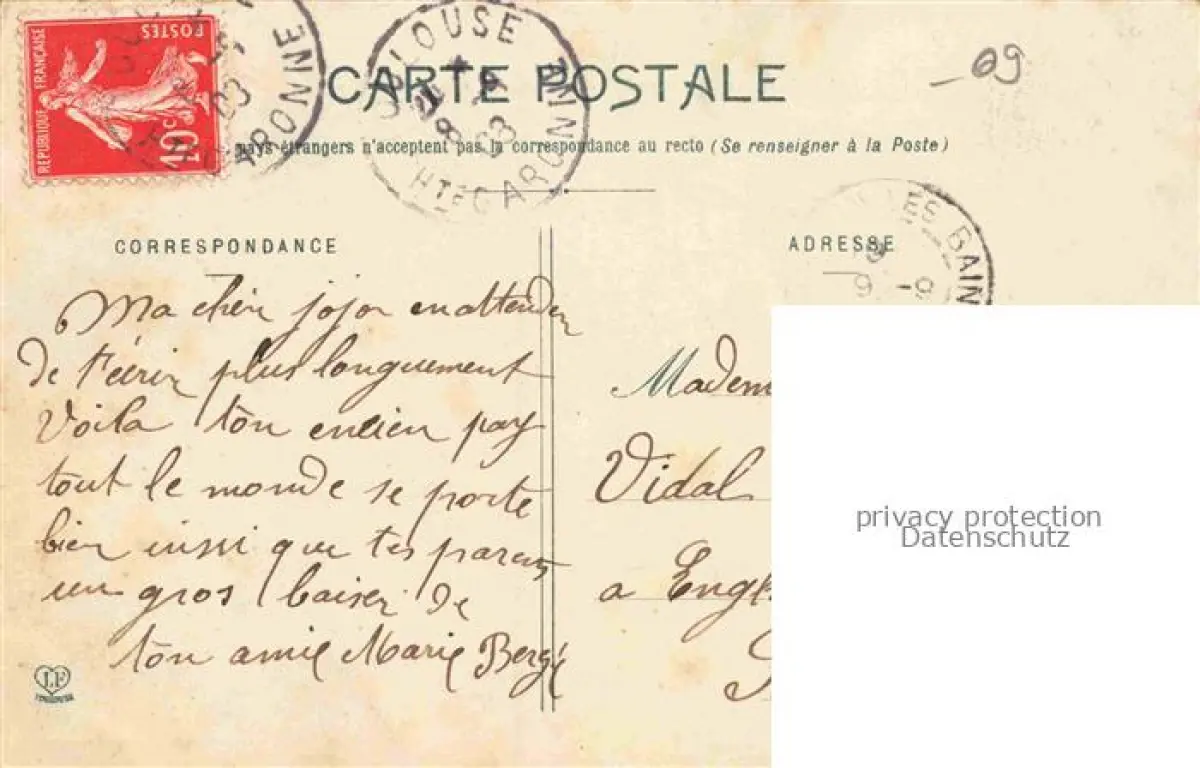 REPUBLIQUE FRANÇAISE
POSTES
10c
RONNE
TOULOUSE
HTE GARONNE
CARTE POSTALE
09
pays étrangers n'acceptent pas la correspondance au recto (Se renseigner à la Poste)
CORRESPONDANCE
ADRESSE
ES-BAIN
Ma chèr jojo en attenden
de t'écrir plus longuement
Voila ton encien pay
tout le monde se porte
bien inssi que tes parens
un gros baiser de
ton amie Marie Bergé
Madem
Vidal
a Engh
LF
privacy protection
Datenschutz